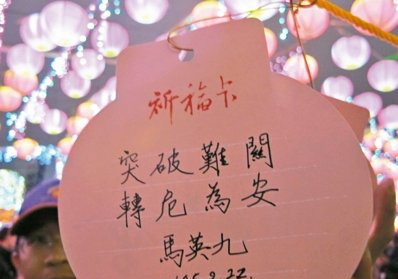 祈福卡
突破難關
轉危為安
馬英九